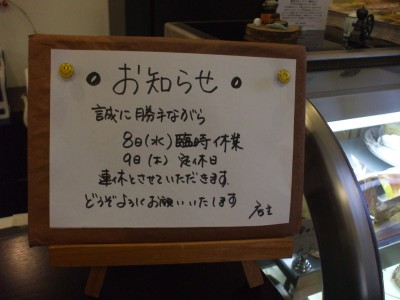 お知らせ
誠に勝手ながら
8日(水)臨時休業
9日(木)定休日
連休とさせていただきます。
どうぞよろしくお願いいたします
店主